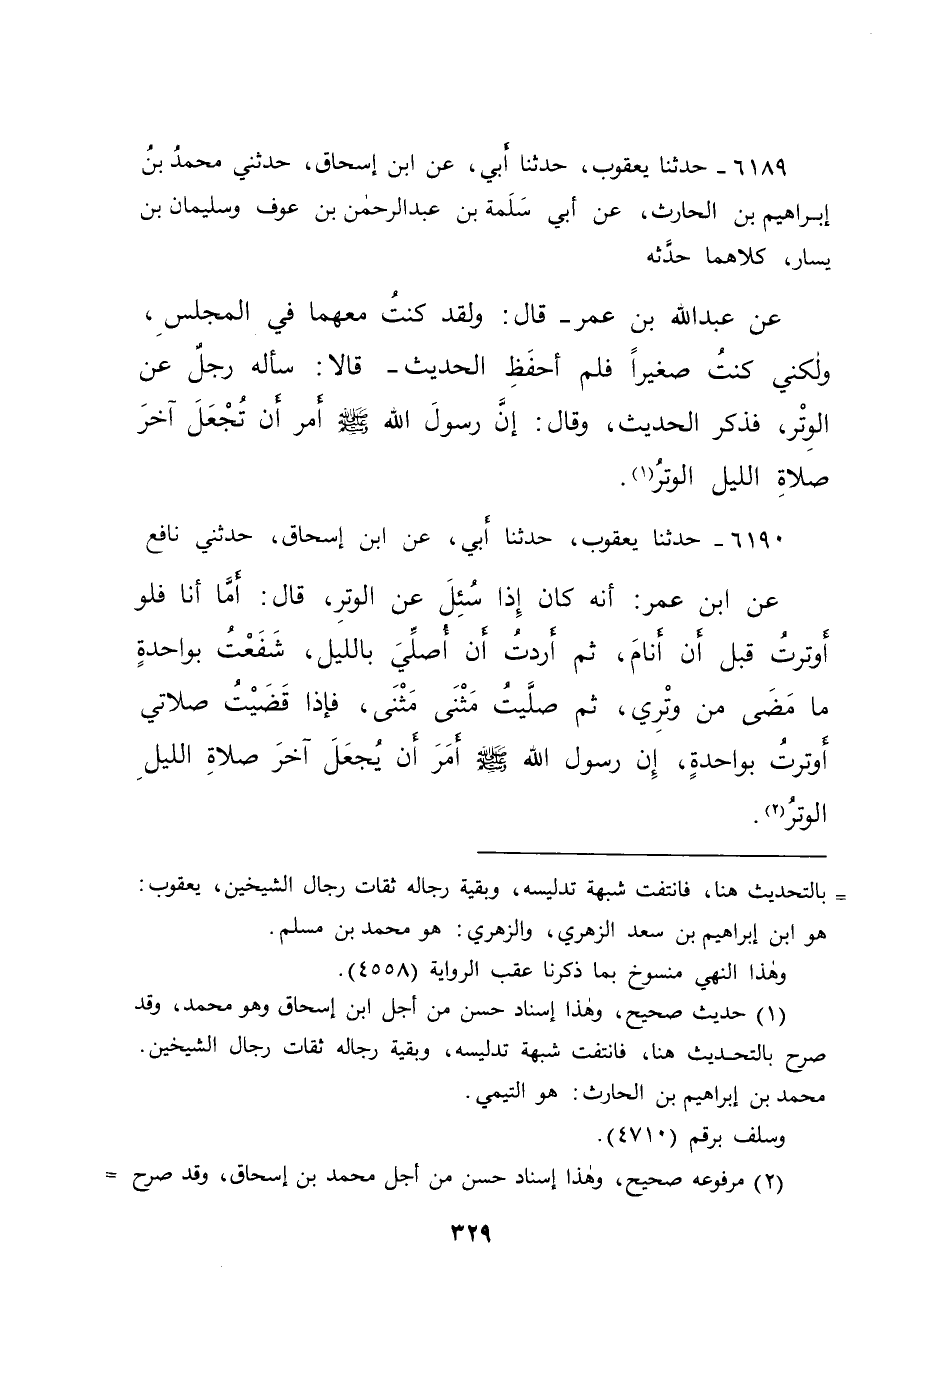 ٦١٨٩ - حدثنا يعقوب، حدثنا أَبي، عن ابن إسحاق، حدثني محمدُ بنُ
إبراهيم بن الحارث، عن أبي سَلَمة بن عبدالرحمٰن بن عوف وسليمان بن
يسار، كلاهما حدَّثه
عن عبدالله بن عمر - قال: ولقد كنتُ معهما في المجلسِ،
ولٰكني كنتُ صغيراً فلم أحفَظِ الحديث - قالا: سأله رجلٌ عن
الوِتْر، فذكر الحديث، وقال: إنَّ رسولَ الله ﷺ أَمر أَن تُجْعَلَ آخرَ
صلاةِ الليل الوترُ(١).
٦١٩٠ - حدثنا يعقوب، حدثنا أَبي، عن ابن إسحاق، حدثني نافع
عن ابن عمر: أنه كان إِذا سُئِلَ عن الوترِ، قال: أَمَّا أنا فلو
أَوترتُ قبل أَن أَنامَ، ثم أَردتُ أَن أُصلِّيَ بالليل، شَفَعْتُ بواحدةٍ
ما مَضَى من وتْرِي، ثم صلَّيتُ مَثْنَى مَثْنَى، فإذا قَضَيْتُ صلاتي
أَوترتُ بواحدةٍ، إِن رسول الله ﷺ أَمَرَ أَن يُجعَلَ آخرَ صلاةِ الليلِ
الوترُ(٢).
= بالتحديث هنا، فانتفت شبهة تدليسه، وبقية رجاله ثقات رجال الشيخين، يعقوب:
هو ابن إبراهيم بن سعد الزهري، والزهري: هو محمد بن مسلم.
وهٰذا النهي منسوخ بما ذكرنا عقب الرواية (٤٥٥٨).
(١) حديث صحيح، وهٰذا إسناد حسن من أجل ابن إسحاق وهو محمد، وقد
صرح بالتحديث هنا، فانتفت شبهة تدليسه، وبقية رجاله ثقات رجال الشيخين.
محمد بن إبراهيم بن الحارث: هو التيمي.
وسلف برقم (٤٧١٠).
(٢) مرفوعه صحيح، وهٰذا إسناد حسن من أجل محمد بن إسحاق، وقد صرح =
٣٢٩